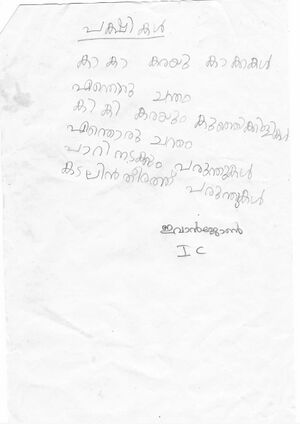 പക്ഷികൾ
കാ കാ കരയു കാക്കകൾ
എന്തൊരു ചന്തം
കി കി കരയും കുഞ്ഞിക്കിളികൾ
എന്തൊരു ചന്തം
പാറി നടക്കും പരുന്തുകൾ
കടലിൻതീരത്ത് പരുന്തുകൾ
ഇവാൻജോൺ
I C